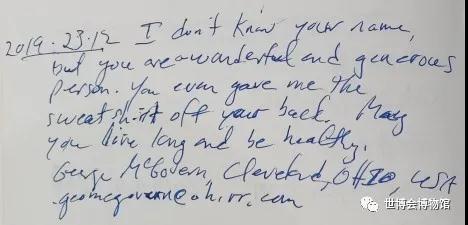 2019.23.12 I don't know your name,
but you are a wonderful and generous
person. You even gave me the
sweatshirt off your back. May
you live long and be healthy.
George McGovern, Cleveland, OHIO, USA
geomcgovern@oh.rr.com
世博会博物馆